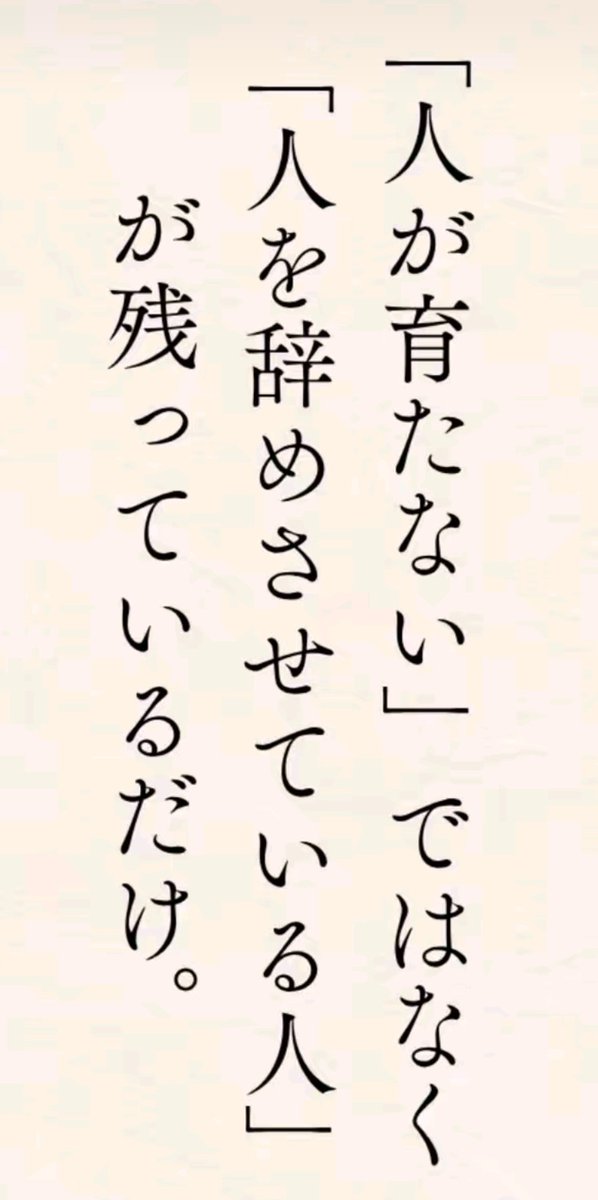 「人が育たない」ではなく
「人を辞めさせている人」
が残っているだけ。